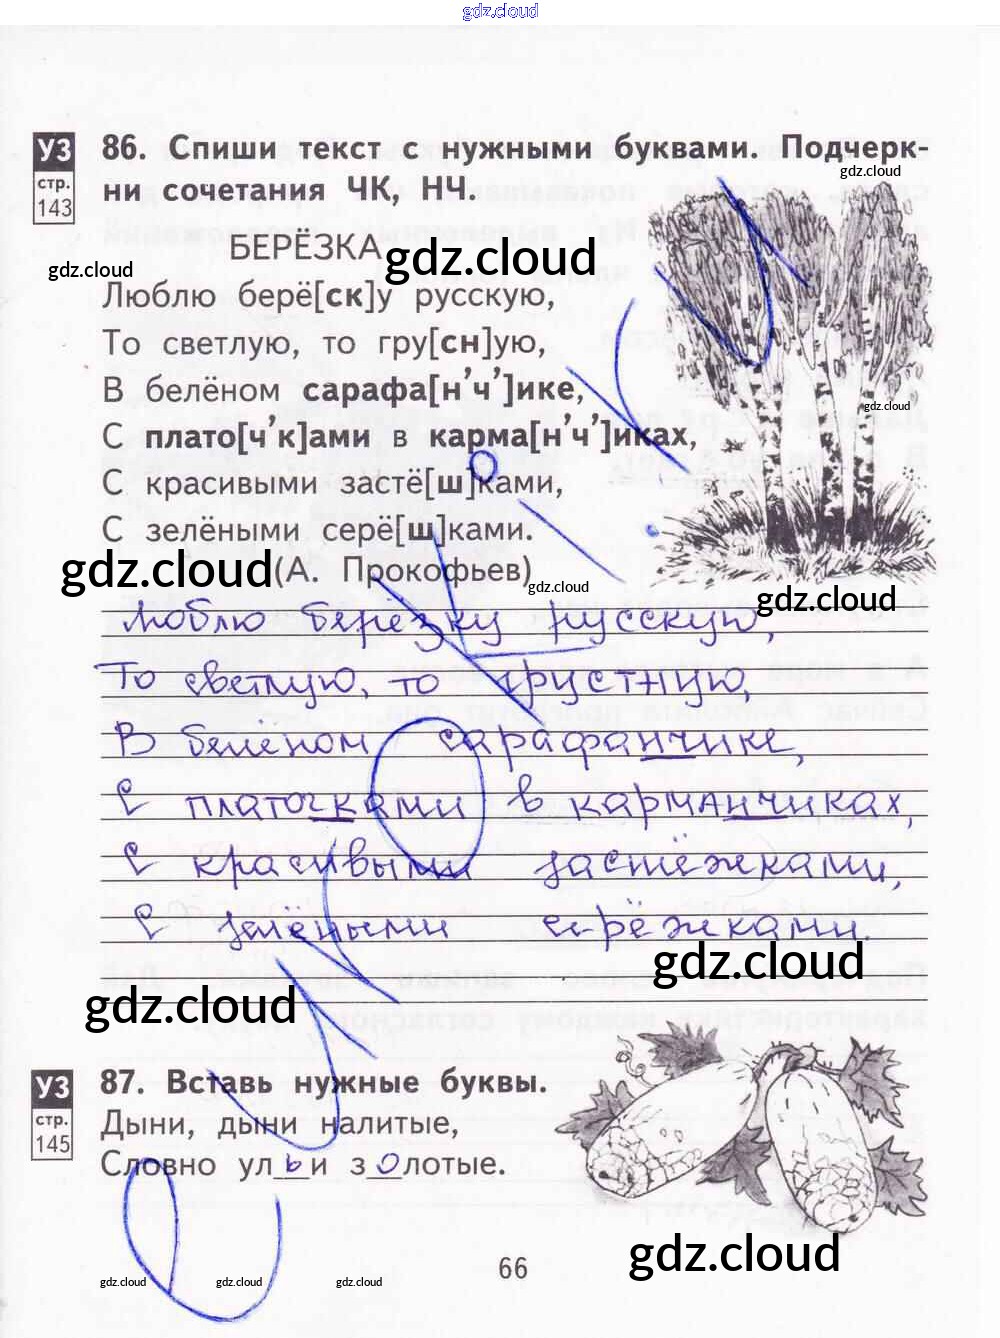 gdz.cloud
УЗ
стр.
143
86. Спиши текст с нужными буквами. Подчерк-
ни сочетания ЧК, НЧ.
gdz.cloud
БЕРЁЗКА
gdz.cloud
gdz.cloud
Люблю берё[ск]у русскую,
То светлую, то гру[сн]ую,
В белёном сарафа[н’ч’]ике,
gdz.cloud
С плато[ч’к]ами в карма[н’ч’]иках,
С красивыми застё[ш]ками,
С зелёными серё[ш]ками.
gdz.cloud
(А. Прокофьев)
gdz.cloud
gdz.cloud
Люблю берёзку русскую,
То светлую, то грустную,
В белёном сарафанчике,
С платочками в карманчиках,
С красивыми застёжками,
С зелёными серёжками.
gdz.cloud
gdz.cloud
УЗ
стр.
145
87. Вставь нужные буквы.
Дыни, дыни налитые,
Словно ульи золотые.
gdz.cloud
66
gdz.cloud
gdz.cloud
gdz.cloud